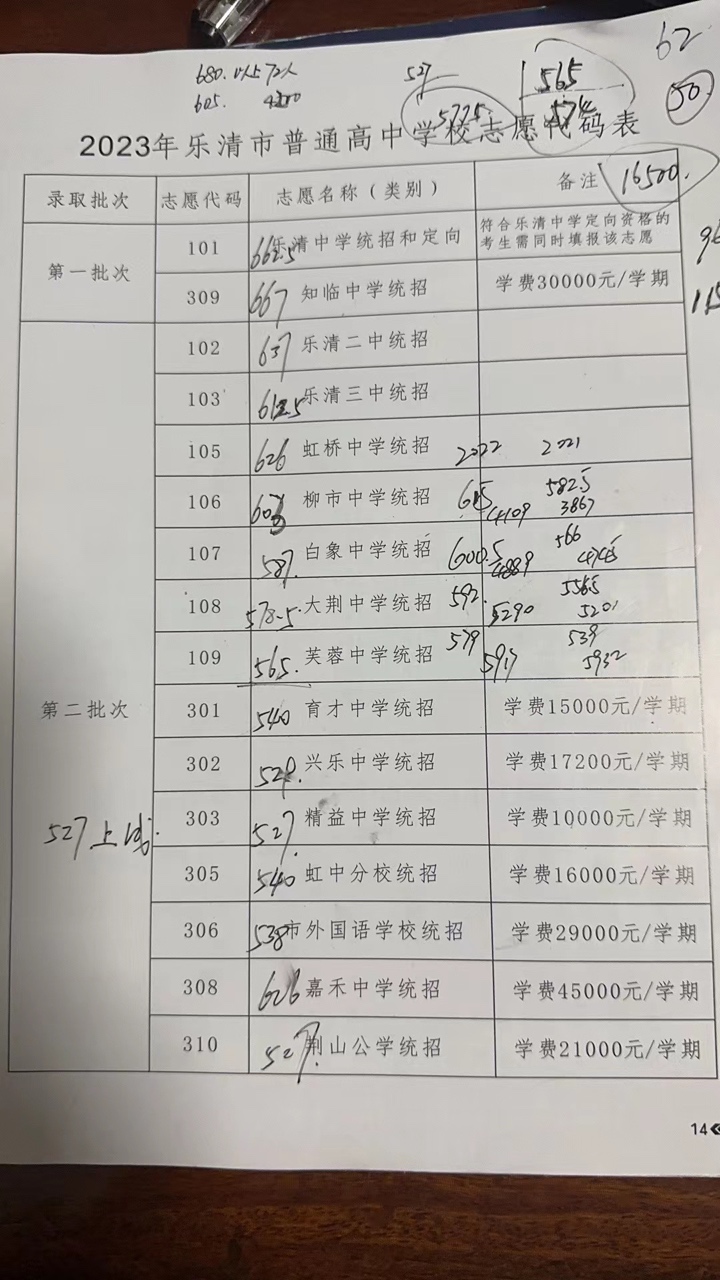 527
565
62
605.
5775.
574
50
2023年乐清市普通高中学校志愿代码表
录取批次 志愿代码 志愿名称（类别） 备注 16500.
第一批次
101 662.5 乐清中学统招和定向 符合乐清中学定向资格的
考生需同时填报该志愿
309 667 知临中学统招 学费30000元/学期
第二批次
102 637 乐清二中统招
103 乐清三中统招
105 626 虹桥中学统招 2022 2021
106 柳市中学统招 615 4109 582.5 3867
107 587. 白象中学统招 600.5 4889 566
108 578.5. 大荆中学统招 592. 5290 556.5 5201
109 565. 芙蓉中学统招 579 5917 539 5932
301 540 育才中学统招 学费15000元/学期
302 兴乐中学统招 学费17200元/学期
527上线.
303 527. 精益中学统招 学费10000元/学期
305 540 虹中分校统招 学费16000元/学期
306 538 市外国语学校统招 学费29000元/学期
308 626 嘉禾中学统招 学费45000元/学期
310 527. 荆山公学统招 学费21000元/学期
14